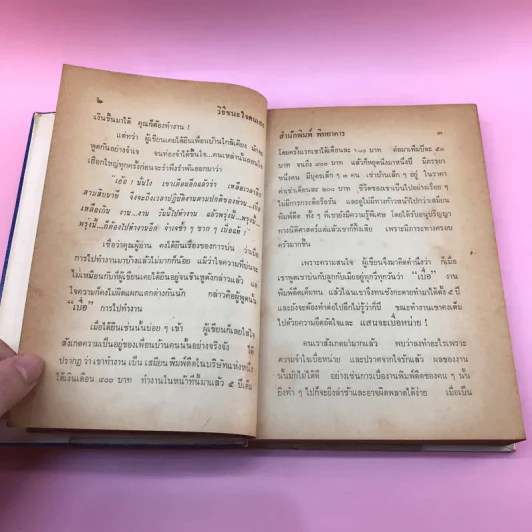 ๒
วิธีชนะใจคนและ
เงินขึ้นมาได้ คุณก็ต้องทำงาน !
แต่ทว่า ผู้เขียนเคยได้ยินเพื่อนบ้านใกล้เคียง มักจะ
พูดกันอย่างจำเจ จนท่องจำได้ขึ้นใจ...คนเหล่านั้นถอนใจ
เฮือกใหญ่ทุกครั้งก่อนจะรำพึงรำพันออกมาว่า
สามสิบนาที จึงจะถึงเวลาปฏิบัติงานตามปกติของท่าน...เบื่อ
เหลือเกิน งาน...งาน วันนี้ไปทำงาน แล้วพรุ่งนี้...พรุ่งนี้...
พรุ่งนี้...ก็ต้องไปทำงานอีก จำเจซ้ำ ๆ ซาก ๆ เบื่อแท้ !
เชื่อว่าคุณผู้อ่าน คงได้ยินเรื่องของการบ่น ว่าเบื่อ
การไปทำงานมาบ้างแล้วไม่มากก็น้อย แม้ว่าใจความที่บ่นจะ
ไม่เหมือนกับที่ผู้เขียนเคยได้ยินอยู่จนชินหูดังกล่าวแล้ว แต่
ใจความก็คงไม่ผิดแผกแตกต่างกันนัก กล่าวคือผู้พูดนั้น
"เบื่อ" การไปทำงาน
เมื่อได้ยินเช่นนั้นบ่อย ๆ เข้า ผู้เขียนก็เลยใส่ใจ
สังเกตความเป็นอยู่ของเพื่อนบ้านคนนั้นอย่างจริงจัง ได้
ปรากฏ ว่า เขาทำงาน เป็น เสมียน พิมพ์ดีด ในบริษัทแห่งหนึ่ง
ได้เงินเดือน ๙๐๐ บาท ทำงานในหน้าที่นี้มาแล้ว ๕ ปีเต็ม
สำนักพิมพ์ พิทยาคาร
๓
โดยครั้งแรกเขาได้เดือนละ ๖๐๐ บาท ต่อมาเพิ่มปีละ ๕๐
บาท จนถึง ๙๐๐ บาท แล้วก็หยุดนิ่งมาหนึ่งปี มีภรรยา
หนึ่งคน มีบุตรเล็ก ๆ ๓ คน เช่าบ้านเล็ก ๆ อยู่ ในราคา
ค่าเช่าเดือนละ ๒๐๐ บาท ชีวิตของเขาเป็นไปอย่างเรื่อย ๆ
ไม่มีการกระตือรือร้น และดูไม่มีทางก้าวหน้าไปกว่าเสมียน
พิมพ์ดีด ทั้ง ๆ ที่เขายังมีความรู้พิเศษ โดยได้รับอนุปริญญา
ทางนิติศาสตร์แต่แล้วเขาก็ทิ้งเสีย เพราะมีภาระทางครอบ
ครัวมากขึ้น
เพราะความสนใจ ผู้เขียนจึงมาคิดคำนึงว่า ก็เมื่อ
เขาพูดเขาบ่นกับลูกกับเมียอยู่ทุกวี่ทุกวันว่า "เบื่อ" งาน
พิมพ์ดีดเต็มทน แล้วไฉนเขาจึงทนซังกะตายทำมาได้ตั้ง ๕ ปี
และยังจะต้องทำต่อไปอีกไม่รู้ว่ากี่ปี ขณะทำงานเขาคงเต็ม
ไปด้วยความอึดอัดใจและ แสนจะเบื่อหน่าย !
คนเราสังเกตมามากแล้ว พบว่าลงทำอะไรเพราะ
ความจำใจเบื่อหน่าย และปราศจากใจรักแล้ว ผลของงาน
นั้นมักไม่ได้ดี อย่างเช่นการเบื่องานพิมพ์ดีดของคน ๆ นั้น
ยิ่งทำ ๆ ไปก็จะยิ่งล่าช้าและอาจผิดพลาดได้ง่าย เมื่อเป็น